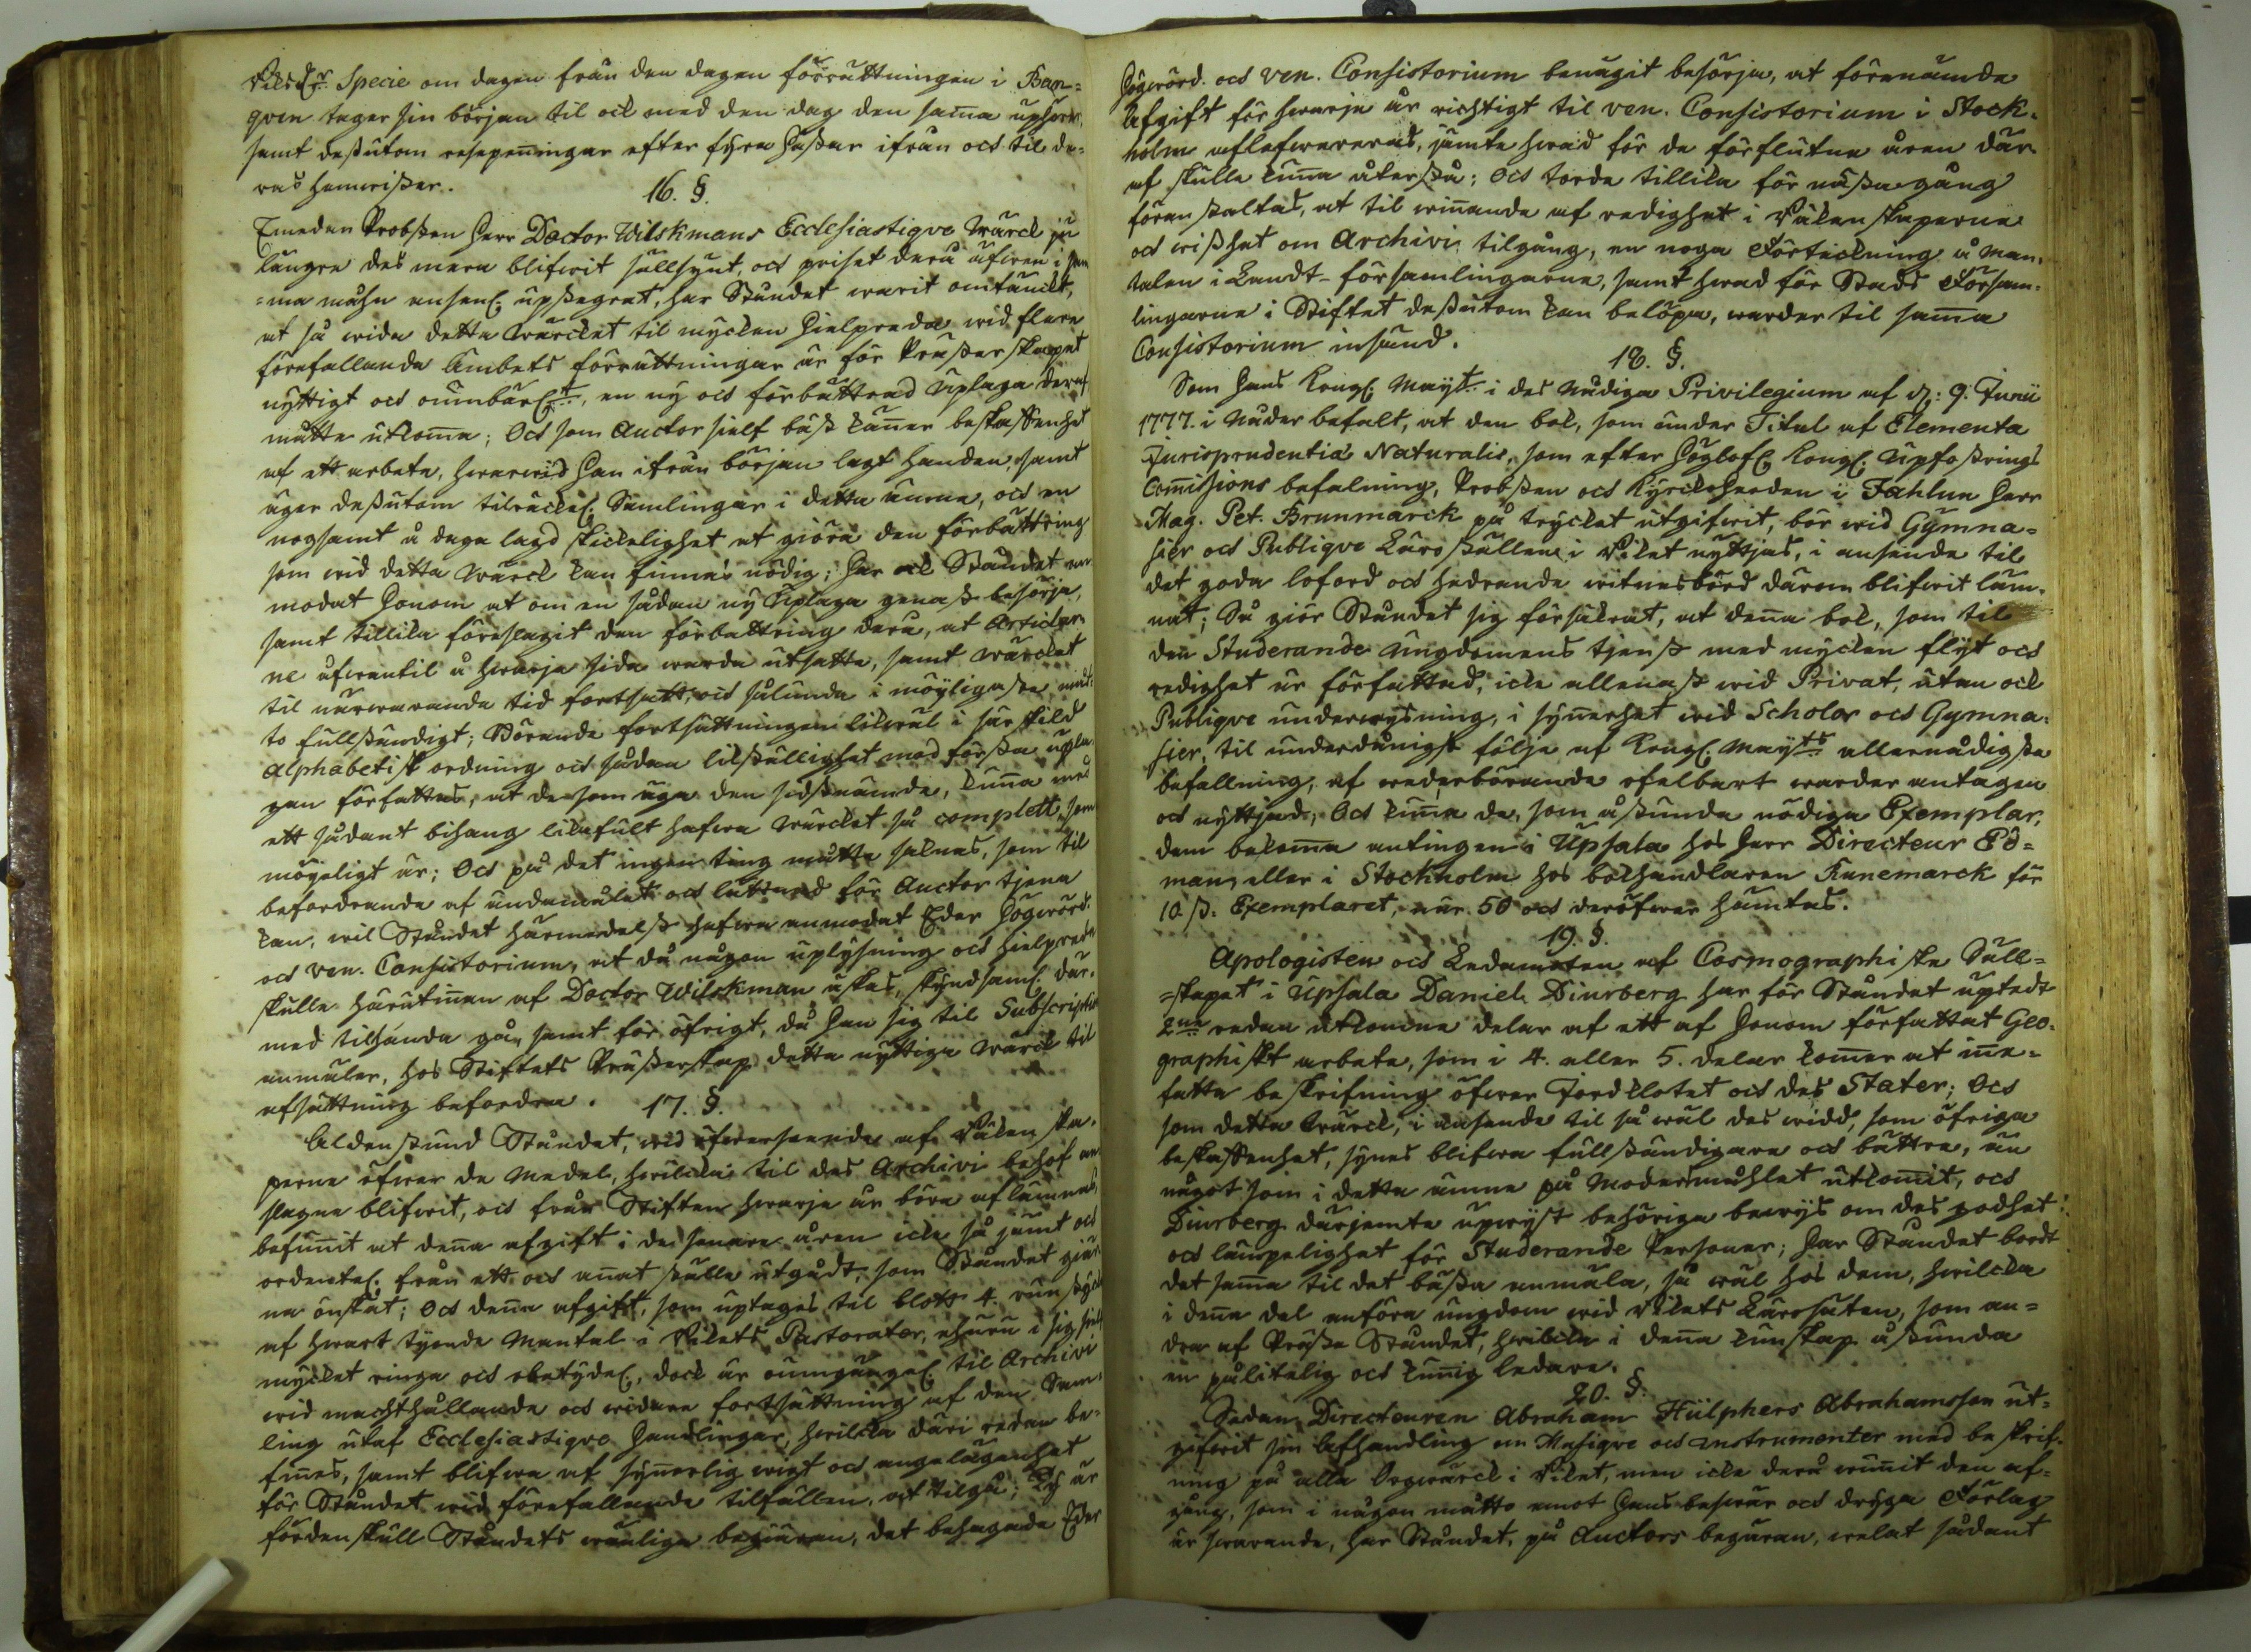 Riksd:r Specie om dagen från den dagen förrättningen i Ban=
quen tager sin början til ock med den dag den samma uphörer,
samt dessutom resepenningar efter fyra hästar ifrån och til de-
ras hemvister.
16. §.
Emedan Probsten Herr Doctor Wilskmans Ecclesiastique Wärck ju
längre des mera blifwit sällsynt, och priset derå äfwen i sam
=ma måhn ansenl. upstegrat, har Ståndet warit omtänckt,
at så wida detta Wärcket til mycken hielpreda wid flere
förefallande Ämbets förrättningar är för Prästerskapet
nyttigt och oumbärl:t, en ny och förbättrad Uplaga deraf
måtte utkomma; Och som Auctor sielf bäst känner beskaffenhet
af ett arbete, hwarwid Han ifrån början lagt handen, samt
äger dessutom tilräckel. Samlingar i detta ämne, och en
nogsamt å daga lagd skickelighet at giöra den förbättring
som wid detta Wärck kan finnas nödig; har ock Ståndet an-
modat Honom at om en sådan ny Uplaga genast besörja,
samt tillika föreslagit den förbättring derå, at Articlar-
ne ofwantil å hwarje sida warda utsatte, samt Wärcket
til närwarande tid fortsatt, och sålunda i möyligaste måt-
to fullständigt; Börande fortsättningen likwäl i särskild
Alphabetisk ordning och sådan likställighet med första uppla-
gan författas, at de som äga den sidstnämde, kunna med
ett sådant bihang likafult hafwa Wärcket så complett, som
möyeligt är; Och på det ingen ting måtte saknas, som til
befordrande af ändamålet och lättnad för Auctor tjena
kan, wil Ståndet härmedelst hafwa anmodat Eder Högwörd.
och Ven. Consistorium, at då någon uplysning och hielpreda
skulle härutinnan af Doctor Wilskman äskas, skyndsaml. där-
med tilhanda gå, samt för öfrigt, då Han sig til Subscription
anmäler, hos Stiftets Prästerskap detta nyttiga Wärck til
afsättning befordra.
17. §.
Aldenstund Ståndet, wid öfwerseende af Räkenska-
perne öfwer de Medel, hwilcka til des Archivi behof an
slagne blifwit, och från Stiften hwarje år böra aflämnas,
befunnit at denna afgift i de senare åren icke så jämt och
ordentel. från ett och annat ställe utgådt, som Ståndet giär-
na önskat; Och denna afgift, som uptages til blott 4. runstyck
af hwart tyende Mantal i Rikets Pastorater, ehuru i sig sielf
mycket ringa och obetydel., dock är oumgängel. til Archivi
wid machthållande och widare fortsättning af den Sam-
ling utaf Ecclesiastique Handlingar, hwilcka däri redan be-
finnes, samt blifwa af synnerlig wigt och angelägenhet
för Ståndet wid förefallande tilfällen, at tilgå; Ty är
fördenskull Ståndets wänliga begäran, det behagade Eder
Högwörd. och Ven. Consistorium benägit besörja, at förenämde
Afgift för hwarje år richtigt til Ven. Consistorium i Stock-
holm aflefwereras, jämte hwad för de förflutne åren där-
af skulle kunna återstå; Och torde tillika för nästa gång
föranstaltas, at til winnande af redighet i Räkenskaperne
och wisshet om Archivi tilgång, en noga Förteckning å Man-
talen i Landt-församlingarne, samt hwad för Stads Försam-
lingarne i Stiftet dessutom kan belöpa, warder til samma
Consistorium insänd.
18. §.
Som Hans Kongl. May:t i des Nådiga Privilegium af d: 9. Junii
1777. i Nåder befalt, at den bok, som under Titul af Elementa
Jurisprudentiæ Naturalis, som efter Höglofl. Kongl. Upfostrings
Commissions befalning, Probsten och Kyrckoherden i Fahlun Herr
Mag. Pet. Brunmarck på trycket utgifwit, bör wid Gymna-
sier och Publique Läroställen i Riket nyttjas, i anseende til
det goda loford och hedrande witnesbörd därom blifwit läm-
nat; Så giör Ståndet sig försäkrat, at denna bok, som til
den Studerande Ungdomens tjenst med mycken flyt och
redighet är författad, icke allenast wid Privat, utan ock
Publique underwysning, i synnerhet wid Scholor och Gymna-
sier, til underdånigst följe af Kongl. May:ts allernådigste
befallning, af wederbörande ofelbart warder antagen
och nyttjad; Och kunna de, som åstunda nödiga Exemplar,
dem bekomma antingen i Upsala hos Herr Directeur Ed-
man, eller i Stockholm hos bokhandlaren Runemarck för
10 ß: Exemplaret, när 50 och deröfwer hämtas.
19. §.
Apologisten och Ledamoten af Cosmographiske Säll-
=skapet i Upsala Daniel Diurberg har för Ståndet uptedt
2:ne redan utkomne delar af ett af Honom författat Geo-
graphiskt arbete, som i 4. eller 5. delar kommer at inne-
fatta beskrifning öfwer Jordklotet och des Stater; Och
som detta Wärck, i anseende til så wäl des widd, som öfriga
beskaffenhet, synes blifwa fullständigare och bättre, än
något som i detta ämne på Modersmåhlet utkommit, och
Diurberg därjemte upwyst behöriga bewys om des godhet
och lämpelighet för Studerande Personer; har Ståndet bordt
det samma til det bästa anmäla, så wäl hos dem, hwilcka
i denna del anföra ungdom wid Rikets Lärosäten, som an-
dra af Präste Ståndet, hwilcka i denna kunskap åstunda
en pålitelig och kunnig ledare.
20. §.
Sedan Directeuren Abraham Hülphers Abrahamsson ut-
gifwit sin Afhandling om Musique och Instrumenter med beskrif-
ning på alla Orgwärck i Riket, men icke derå wunnit den af-
gång, som i någon måtto emot Hans beswär och dryga Förlag
är swarande, har Ståndet, på Auctors begäran, welat sådant